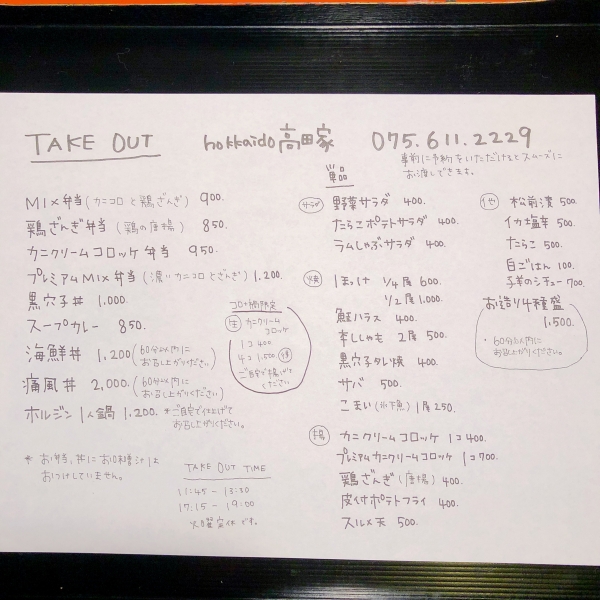 TAKE OUT hokkaido 高田家 075.611.2229
事前に予約をいただけるとスムーズに
お渡しできます。
MIX弁当(カニコロと鶏ざんぎ) 900.
鶏ざんぎ弁当 (鶏の唐揚) 850.
カニクリームコロッケ弁当 950.
プレミアムMIX弁当(濃いカニコロとざんぎ) 1.200
黒穴子丼 1.000.
スープカレー 850.
海鮮丼 1.200 (60分以内に
お召し上がりください)
痛風丼 2,000. (60分以内に
お召し上がりください)
ホルジン1人鍋 1.200. *ご自宅で仕上げて
お召し上がりください。
* お弁当、丼にお味噌汁は
おつけしていません。
コロナ期間限定
生 カニクリーム
コロッケ
1コ 400
4コ 1.500
ご自宅で揚げて
ください
TAKE OUT TIME
11:45 - 13:30
17:15 - 19:00
火曜定休です。
単品
サラダ 野菜サラダ 400.
たらこポテトサラダ 400.
ラムしゃぶサラダ 400.
焼 ほっけ 1/4尾 600.
1/2尾 1.000.
鮭ハラス 400.
本ししゃも 2尾 500.
黒穴子タレ焼 400.
サバ 500.
こまい(氷下魚) 1尾 250.
揚 カニクリームコロッケ 1コ 400.
プレミアムカニクリームコロッケ 1コ 700.
鶏ざんぎ(唐揚) 400.
皮付ポテトフライ 400.
スルメ天 500.
他 松前漬 500.
イカ塩辛 500.
たらこ 500.
白ごはん 100.
子羊のシチュー 700.
お造り4種盛
1.500.
・60分以内に
お召し上がりください。